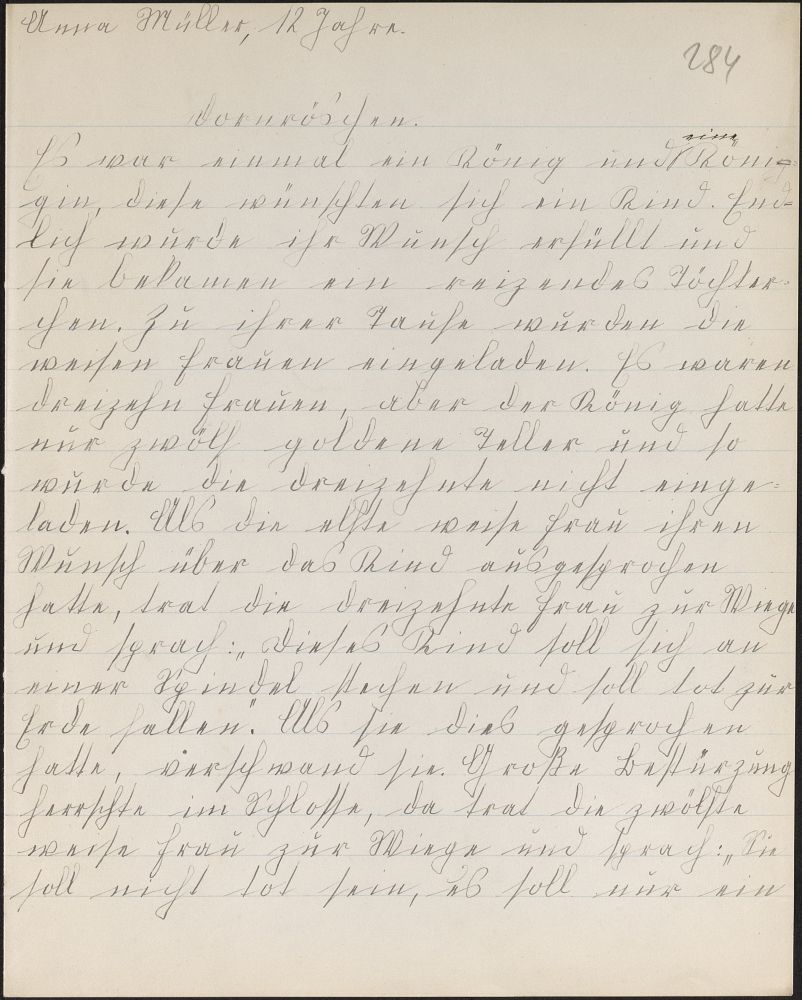 Anna Müller, 12 Jahre.
284
Dornröschen.
eine
Es war einmal ein König und Köni=
gin, diese wünschten sich ein Kind. End=
lich wurde ihr Wunsch erfüllt und
sie bekamen ein reizendes Töchter=
chen. Zu ihrer Taufe wurden die
weisen Frauen eingeladen. Es waren
dreizehn Frauen, aber der König hatte
nur zwölf goldene Teller und so
wurde die dreizehnte nicht einge=
laden. Als die elfte weise Frau ihren
Wunsch über das Kind ausgesprochen
hatte, trat die dreizehnte Frau zur Wiege
und sprach: „Dieses Kind soll sich an
einer Spindel stechen und soll tot zur
Erde fallen". Als sie dies gesprochen
hatte, verschwand sie. Große Bestürzung
herrschte im Schlosse, da trat die zwölfte
weise Frau zur Wiege und sprach: „Sie
soll nicht tot sein, es soll nur ein